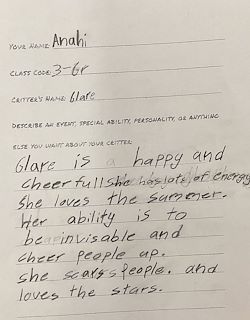 YOUR NAME: Anahi
CLASS CODE: 3-Gr
CRITTER'S NAME: Glare
DESCRIBE AN EVENT, SPECIAL ABILITY, PERSONALITY, OR ANYTHING
ELSE YOU WANT ABOUT YOUR CRITTER:
Glare is a happy and
cheerfull she has lots of energy
She loves the summer.
Her ability is to
be invisable and
cheer people up.
she scares people. and
loves the stars.